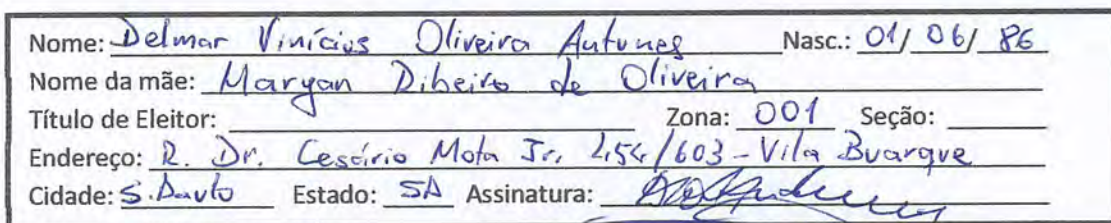 Nome: Delmar Vinícius Oliveira Antunes Nasc.: 01/06/86
Nome da mãe: Maryan Ribeiro de Oliveira
Título de Eleitor: Zona: 001 Seção:
Endereço: R. Dr. Cesário Mota Jr, 454/603 - Vila Buarque
Cidade: S. Paulo Estado: SP Assinatura: